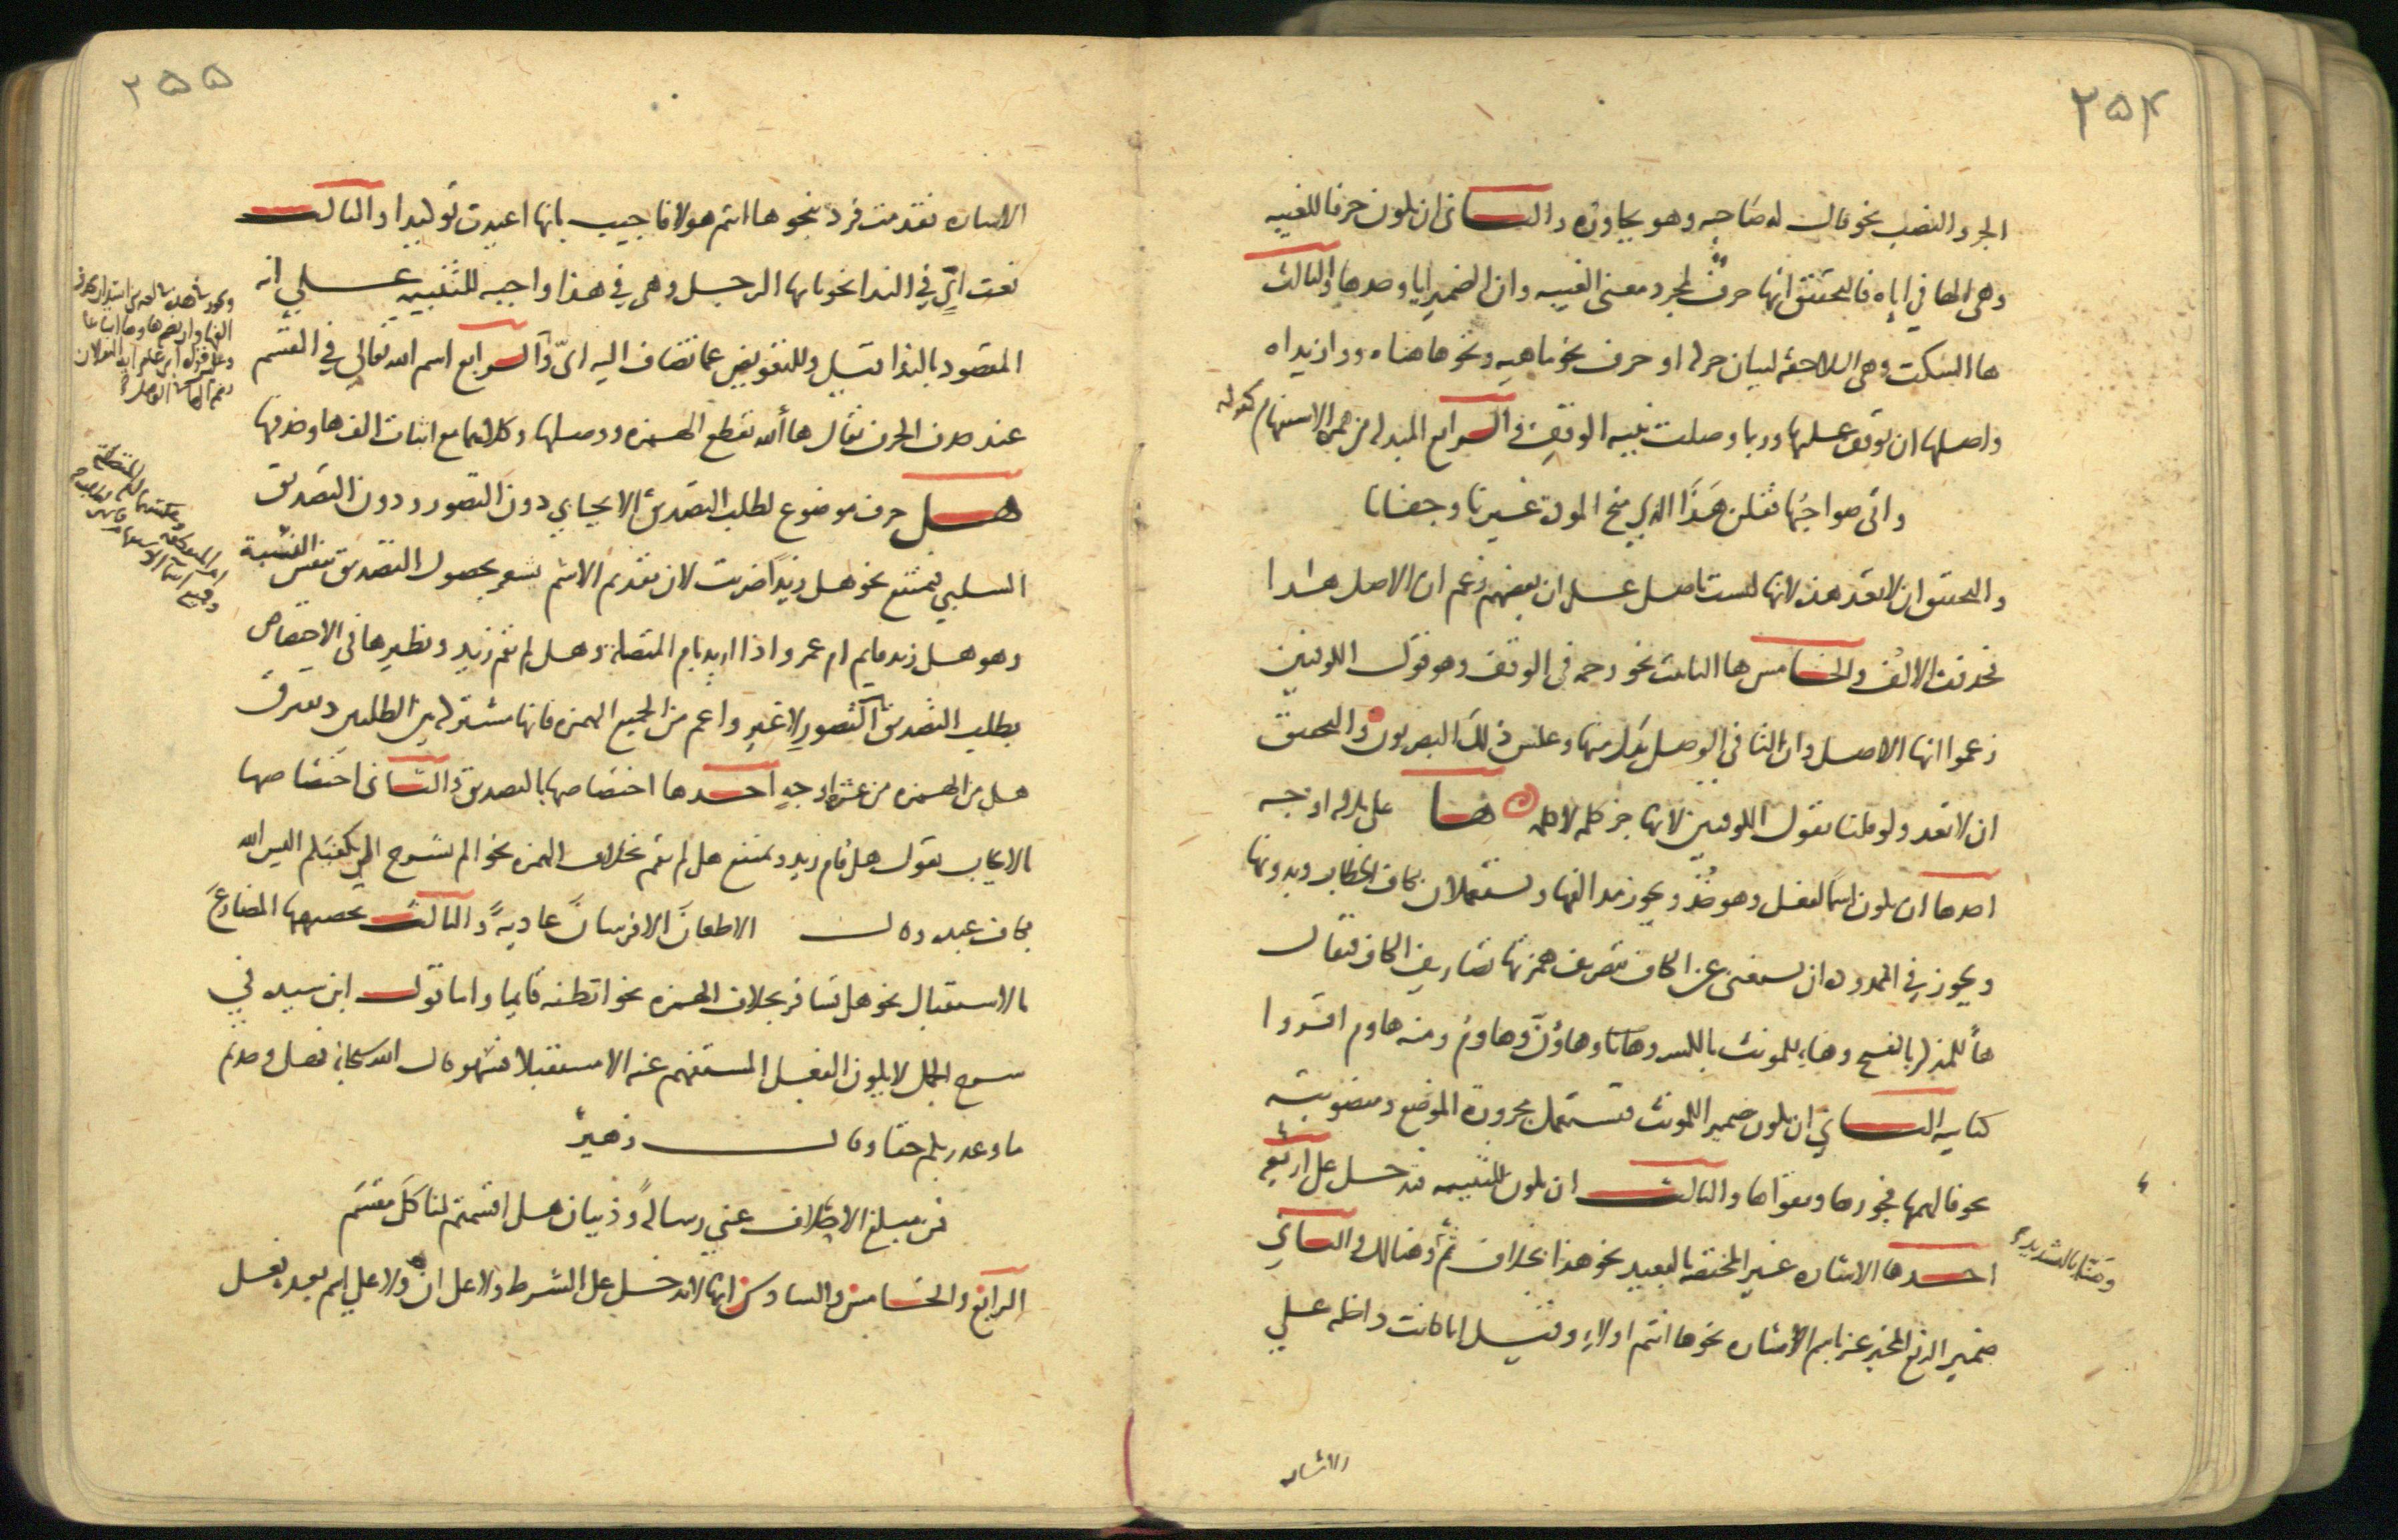 ٢٥٤
الجر والنصب نحو قال له صاحبه وهو يحاوره والثاني ان يكون حرفا للغيبة
وهي الها في اياه فالتحقيق انها حرف لمجرد معنى الغيبه وان الضمير ايا وحدها والثالث
ها السكت وهي اللاحقه لبيان حركة او حرف نحو ماهيه ونحو هاهناه ووازيداه
واصلها ان يوقف عليها وربما وصلت بنية الوقف والرابع المبدلة من همزة الاستفهام كقوله
واتى صواحبها فقلن هذا الذي منح المودة غيرنا وجفانا
والتحقيق ان لا تعد هذه لانها ليست باصل على ان بعضهم زعم ان الاصل هذا
فحذفت الالف والخامس ها التانيث نحو رحمه في الوقف وهو قول الكوفيين
زعموا انها الاصل وان التا في الوصل بدل منها وعكس ذلك البصريون والتحقيق
ان لا تعد ولو قلنا بقول الكوفيين لانها جز كلمه لا كلمه ها على ثلاثة اوجه
احدها ان يكون اسما لفعل وهو خذ ويجوز مد الفها ويستعملان بكاف الخطاب وبدونها
ويجوز في الممدوده ان يستغنى عن الكاف بتصريف همزتها تصاريف الكاف فيقال
هاء للمذكر بالفتح وهاء للمونث بالكسر وهاوما وهاؤن وهاوم ومنه هاوم اقروا
كتابيه الثاني ان يكون ضمير اللمونث فتستعمل مجرورة الموضع ومنصوبته
نحو فالهمها فجورها وتقواها والثالث ان يكون للتنبيه فتدخل على اربعة
احدها الاشاره غير المختصه بالبعيد نحو هذا بخلاف ثم وهنالك والثاني
وهنا بالتشديد
ضمير الرفع المخبر عنه باسم الاشاره نحو ها انتم اولاء وقيل انما كانت داخله على
الاشاره
٢٥٥
الاشاره تقدمت فرد بنحو ها انتم هولا فاجيب بانها اعيدت توكيدا والثالث
نعت اي في الندا نحو يايها الرجل وهي في هذا واجبه للتنبيه على انه
المقصود بالندا قيل وللتعويض عما تضاف اليه اي والرابع اسم الله تعالى في القسم
عند حذف الحرف يقال ها ألله بقطع الهمزه ووصلها وكلاهما مع اثبات الف ها وحذفها
هل حرف موضوع لطلب التصديق الايجابي دون التصور ودون التصديق
السلبي فيمتنع نحو هل زيدا ضربت لان تقديم الاسم يشعر بحصول التصديق بنفس النسبة
وهو هل زيد قايم ام عمرو اذا اريد بام المتصلة وهل لم يقم زيد ونظيرها في الاختصاص
بطلب التصديق التصور لا غير واعم من الجميع الهمزه فانها مشتركه بين الطلبين وتفترق
هل من الهمزه من عشرة اوجه احدها اختصاصها بالتصديق والثاني اختصاصها
بالايجاب تقول هل قام زيد ويمتنع هل لم يقم بخلاف الهمزه نحو الم نشرح الن يكفيكم اليس الله
بكاف عبده وقال الاطعان الافرسان عادية والثالث تخصيصها المضارع
بالاستقبال نحو هل تسافر بخلاف الهمزه نحو اتظنه قايما واما قول ابن سيده في
شرح الجمل لا يكون الفعل المستفهم عنه الا مستقبلا فسهو قال الله سبحانه فهل وجدتم
ما وعد ربكم حقا وقال زهير
فمن مبلغ الاحلاف عني رسالة وذبيان هل اقسمتم لنا كل مقسم
الرابع والخامس والسادس انها لا تدخل على الشرط ولا على ان ولا على اسم بعده فعل